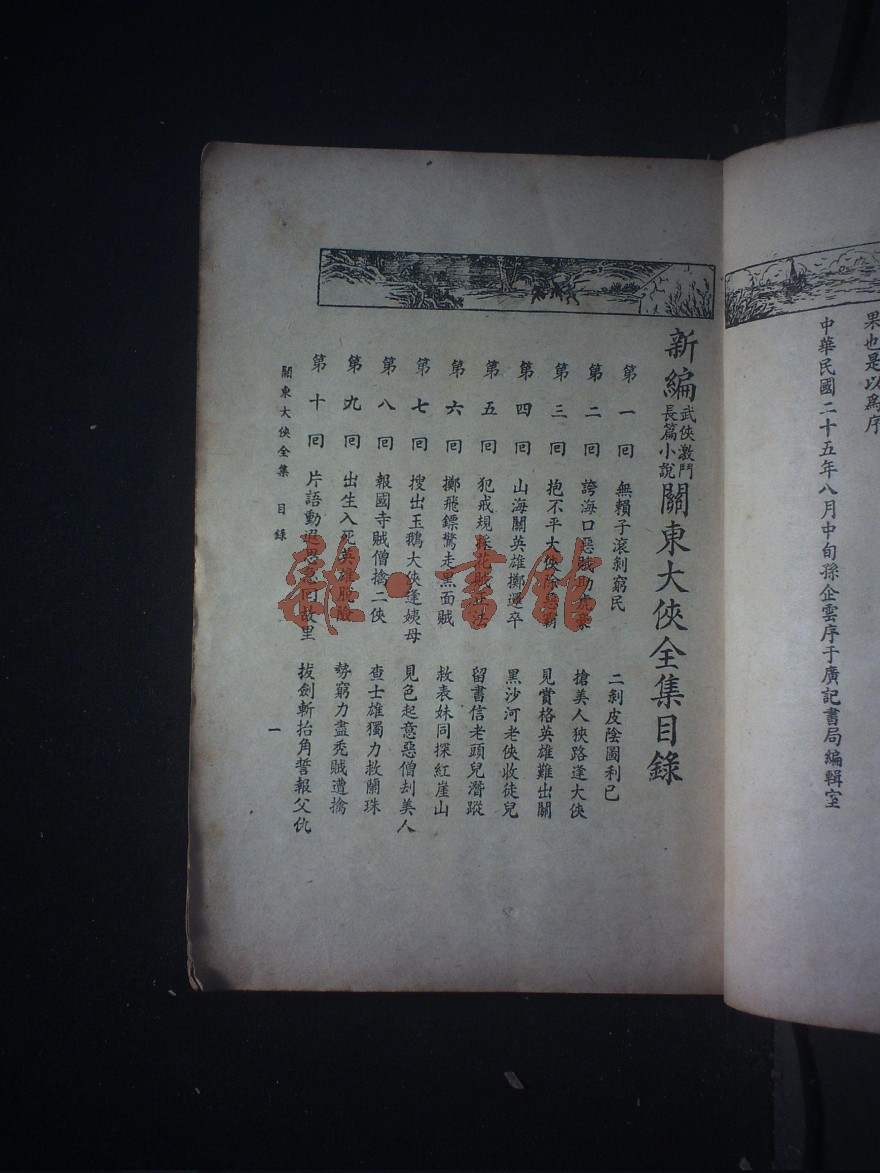 果也是以爲序
中華民國二十五年八月中旬孫企雲序于廣記書局編輯室
新編武俠激鬥長篇小說關東大俠全集目錄
第一回 無賴子滾剥窮民 二剥皮陰圖利已
第二回 誇海口惡賊助虎豪 搶美人狹路逢大俠
第三回 抱不平大俠除惡 見賞格英雄難出關
第四回 山海關英雄擲邏卒 黑沙河老俠收徒兒
第五回 犯戒規採花賊正法 留書信老頭兒潛蹤
第六回 擲飛鏢驚走黑面賊 救表妹同探紅崖山
第七回 搜出玉鵝大俠逢姨母 見色起意惡僧刦美人
第八回 報國寺賊僧擒二俠 查士雄獨力救蘭珠
第九回 出生入死英雄脫險 勢窮力盡禿賊遭擒
第十回 片語動遐思急回故里 拔劍斬抬角誓報父仇
關東大俠全集 目錄
一
雜·書館